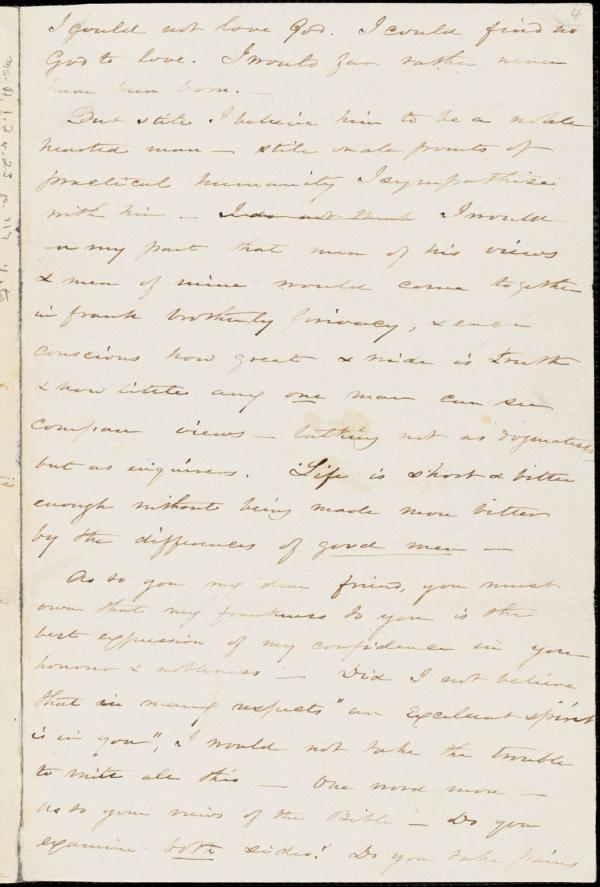 4
I could not love God. I could find no
God to love. I would far rather never
have been born. —
But still I believe him to be a noble
hearted man — still on all points of
practical humanity I sympathise
with him — I do not think I would
on my part that men of his views
& men of mine would come together
in frank brotherly privacy, & each
conscious how great & wide is Truth
& how little any one man can see
compare views — talking not as dogmatists
but as inquirers. Life is short & bitter
enough without being made more bitter
by the differences of good men —
As to you my dear friend, you must
own that my frankness to you is the
best expression of my confidence in your
honour & nobleness — Did I not believe
that in many respects "an Excellent spirit
is in you", I would not take the trouble
to write all this — One word more —
as to your views of the Bible — Do you
examine both sides? Do you take pains